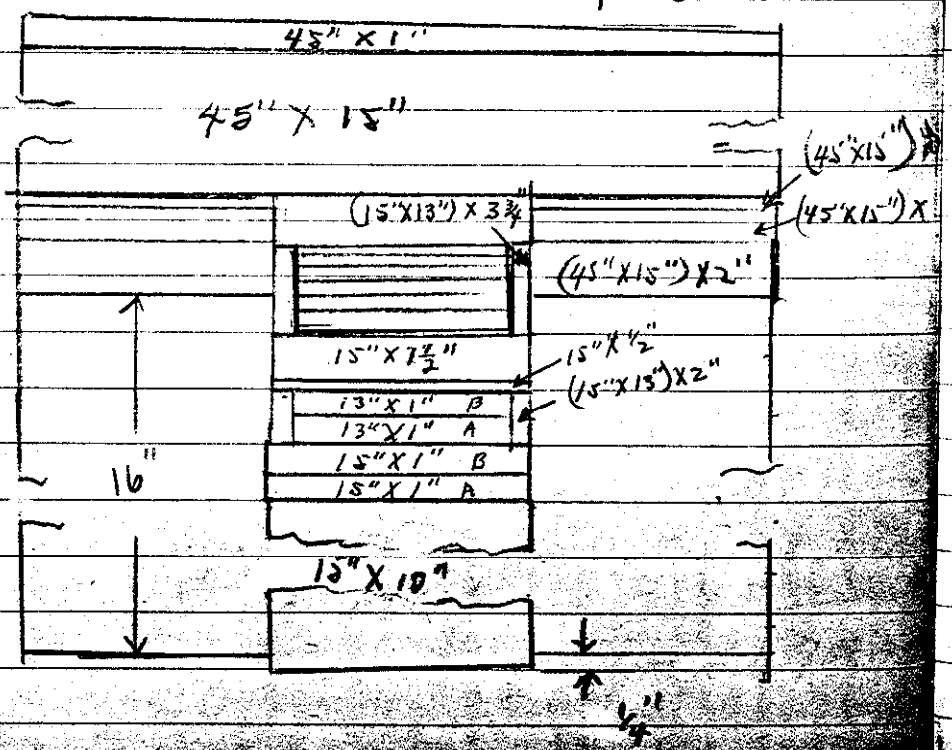 45" X 1"
45" X 15"
(45"X15")
(15"X13") X 3¾"
(45"X15") X
(45"X15") X 2"
15" X ½"
(15"X13") X 2"
13" X 1" B
13" X 1" A
15" X 1" B
15" X 1" A
16"
15" X 10"
¼"